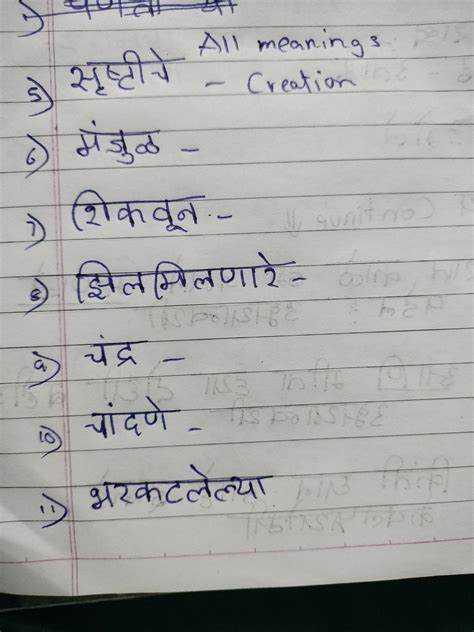 All meanings
5) सृष्टीचे - Creation
6) मंजुळ -
7) शिकवून -
8) झिलमिलणारे -
9) चंद्र -
10) चांदणे -
11) भरकटलेल्या